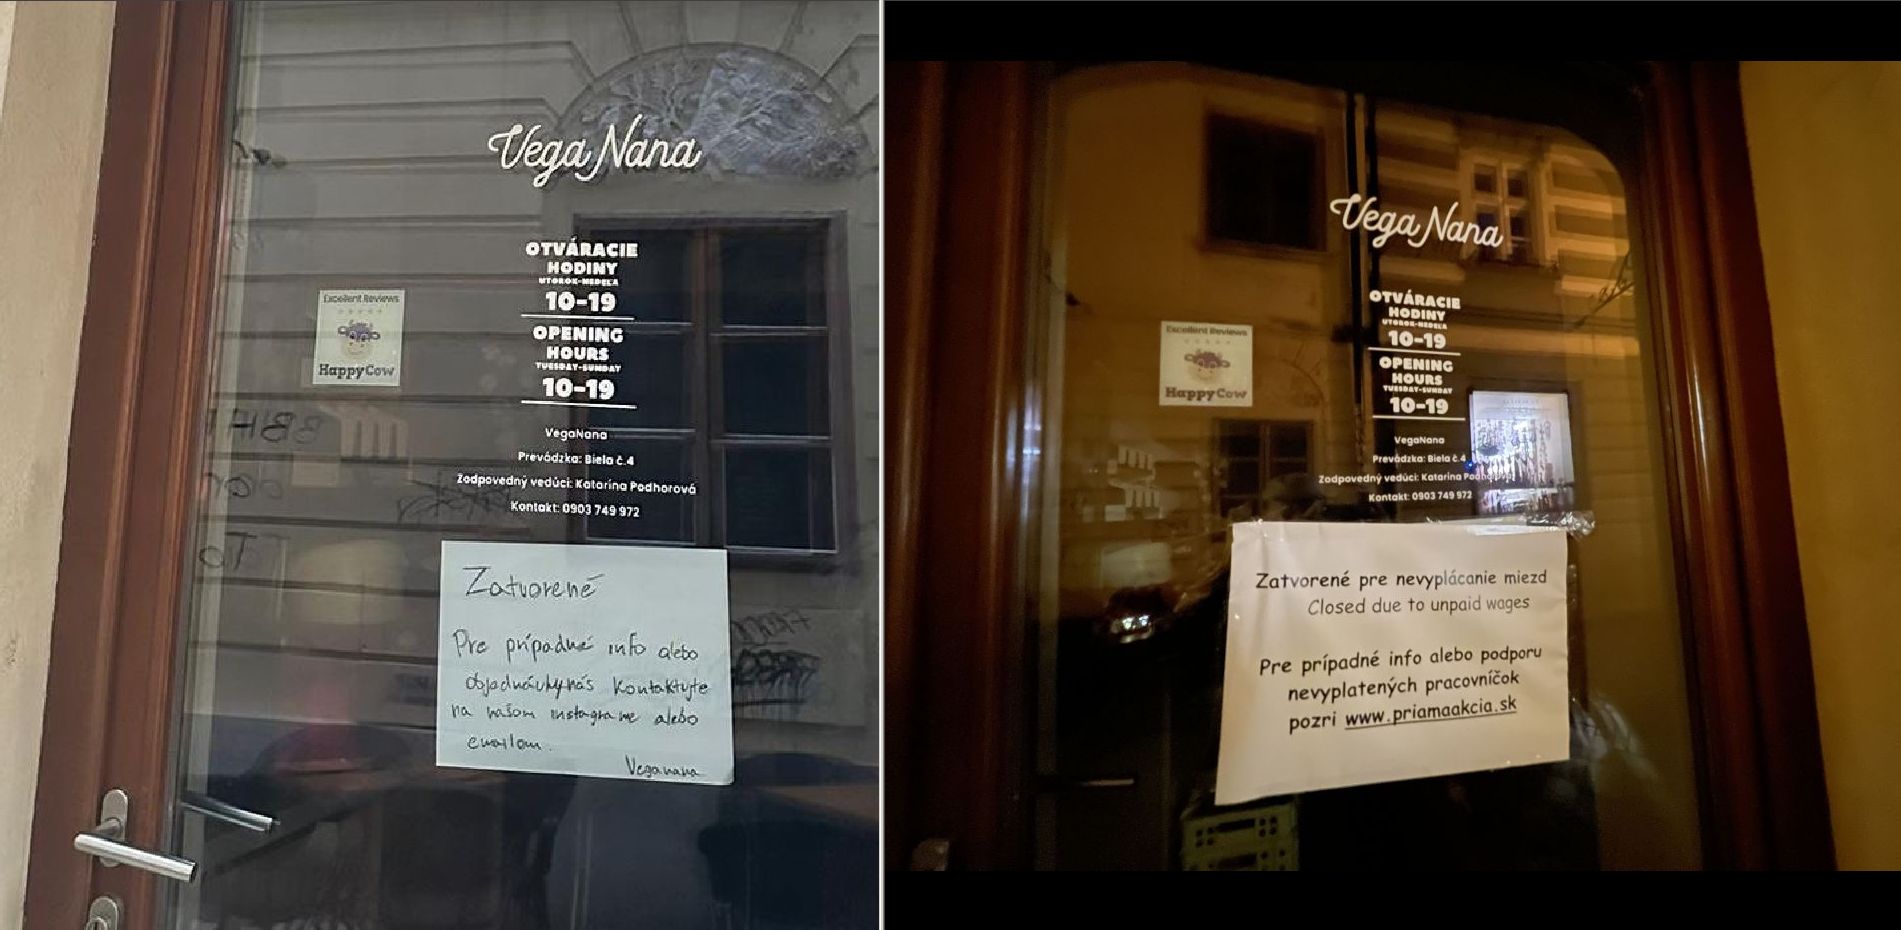 Vega Nana
OTVÁRACIE
HODINY
UTOROK-NEDEĽA
10-19
OPENING
HOURS
TUESDAY-SUNDAY
10-19
Excellent Reviews
HappyCow
VegaNana
Prevádzka: Biela č.4
Zodpovedný vedúci: Katarína Podhorová
Kontakt: 0903 749 972
Zatvorené
Pre prípadné info alebo
objednávky nás kontaktujte
na našom instagrame alebo
emailom.
Veganana
Vega Nana
OTVÁRACIE
HODINY
UTOROK-NEDEĽA
10-19
OPENING
HOURS
TUESDAY-SUNDAY
10-19
Excellent Reviews
HappyCow
VegaNana
Prevádzka: Biela č.4
Zodpovedný vedúci: Katarína Podhorová
Kontakt: 0903 749 972
Zatvorené pre nevyplácanie miezd
Closed due to unpaid wages
Pre prípadné info alebo podporu
nevyplatených pracovníčok
pozri www.priamaakcia.sk